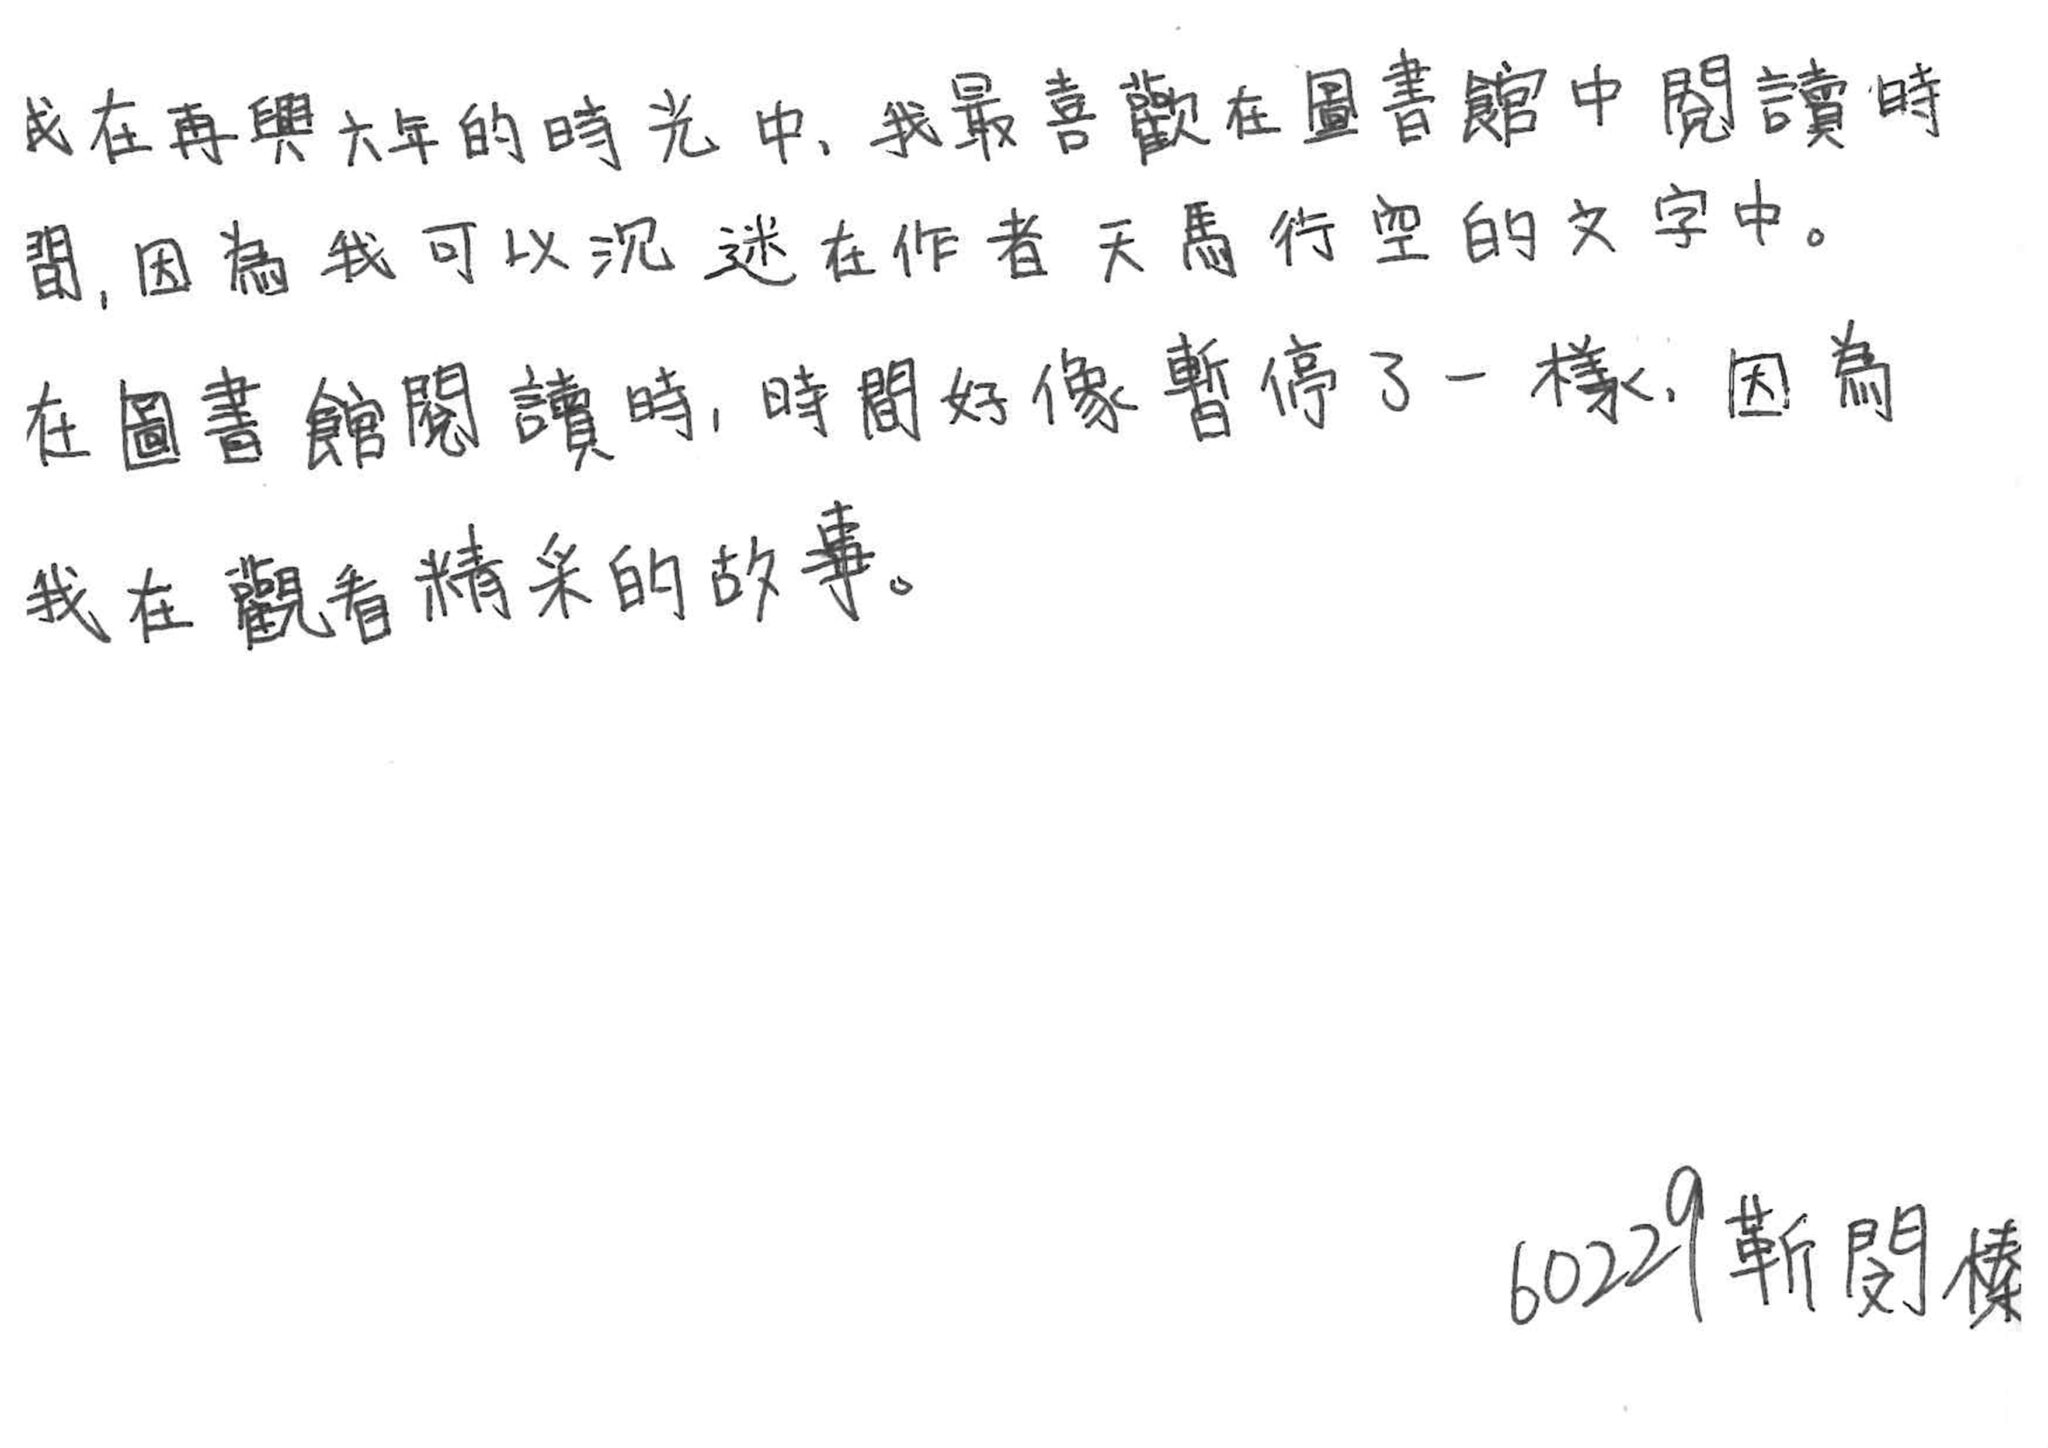 我在再興六年的時光中，我最喜歡在圖書館中閱讀時
間，因為我可以沉迷在作者天馬行空的文字中。
在圖書館閱讀時，時間好像暫停了一樣，因為
我在觀看精采的故事。
60229靳閔榛